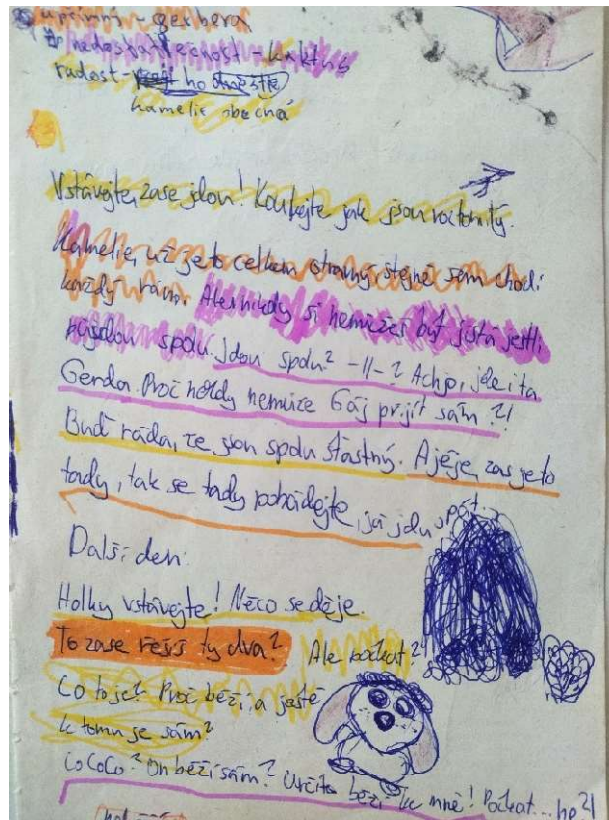 upřímný - gerbera
nedosažitelnost - kaktus
radost -
kamelie obecná
Vstávejte, zase jdou! Koukejte jak jsou roztomilý.
Kamelie, už je to celkem otravný, stejně sem chodí
každý ráno. Ale nikdy si nemůžeš být jistá jestli
půjdou spolu. Jdou spolu? -11- ? Achjo, jde i ta
Gerda. Proč nikdy nemůže Gáj přijít sám?!
Buď ráda, že jsou spolu šťastný. A jéje, zas je to
tady, tak se tady pohádejte, já jdu spát.
Další den:
Holky vstávejte! Něco se děje.
To zase řešíš ty dva? Ale počkat?
Co to je? Proč běží a ještě
k tomu je sám?
CoCoCo? On běží sám? Určitě běží ke mně! Počkat... ne?!